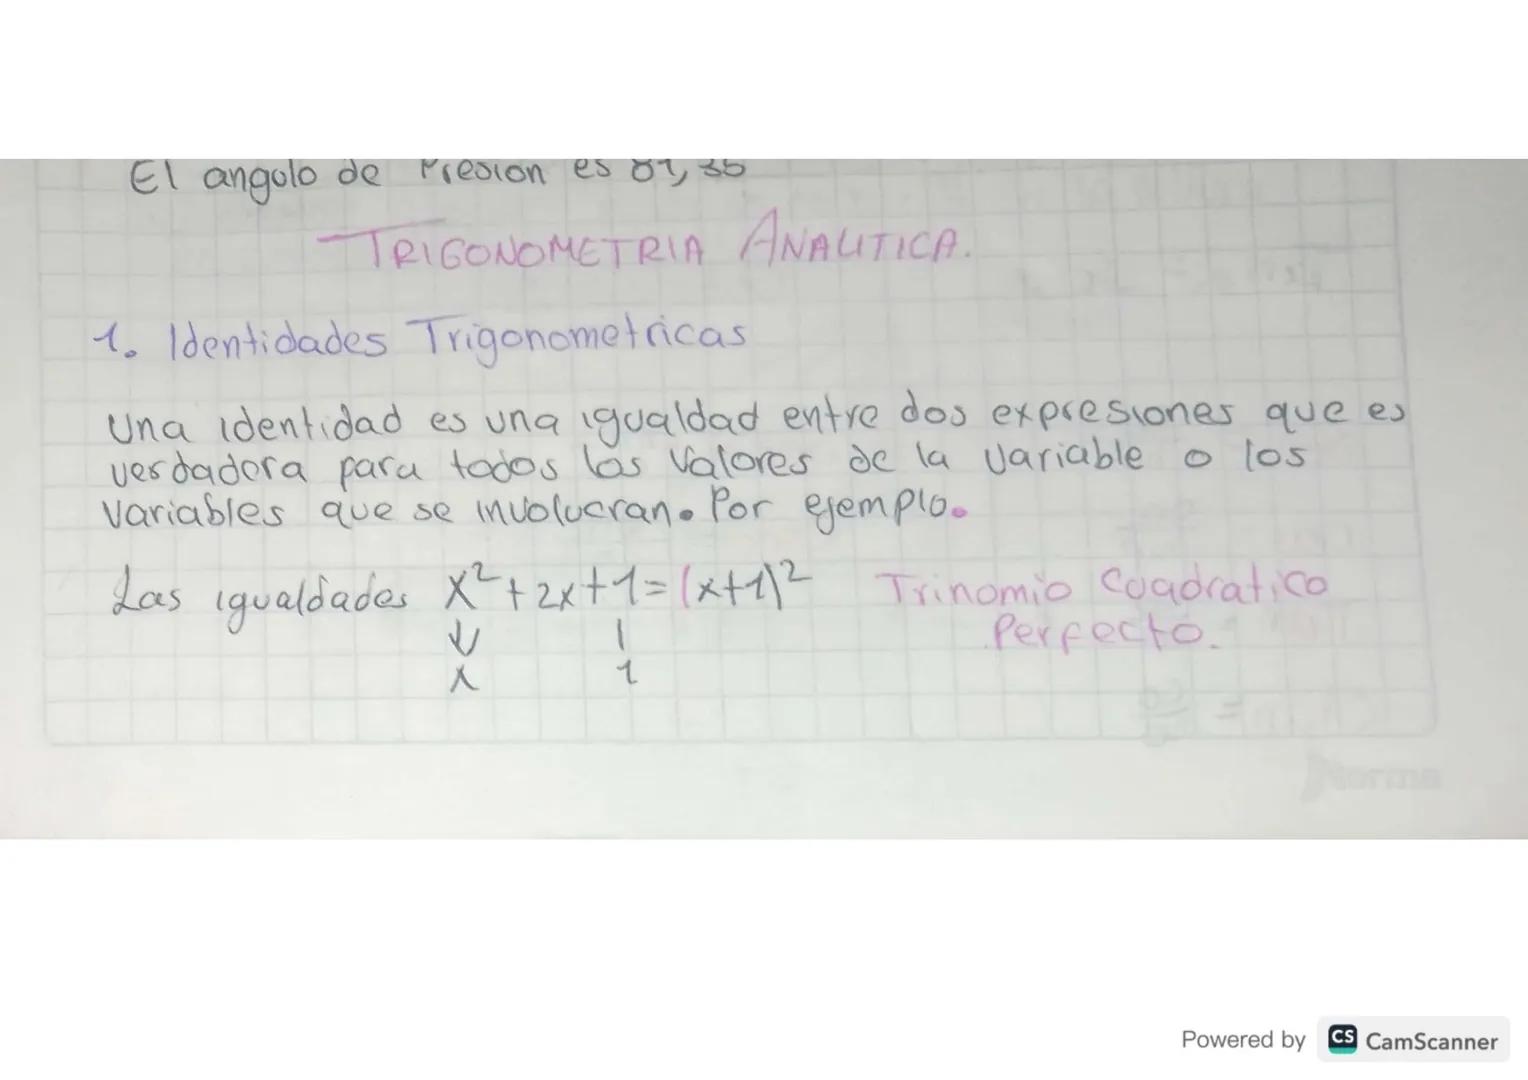 El angulo de Presion es 81,35
TRIGONOMETRIA ANALITICA.
1. Identidades Trigonometricas
Una identidad es una igualdad entre dos expresiones que es
verdadera para todos los valores de la variable o los
variables que se involucran. Por ejemplo.
Las igualdades x²+2x+1=(x+1)² Trinomio Cuadratico
Perfecto.
x 1
Norma
Powered by CS CamScanner